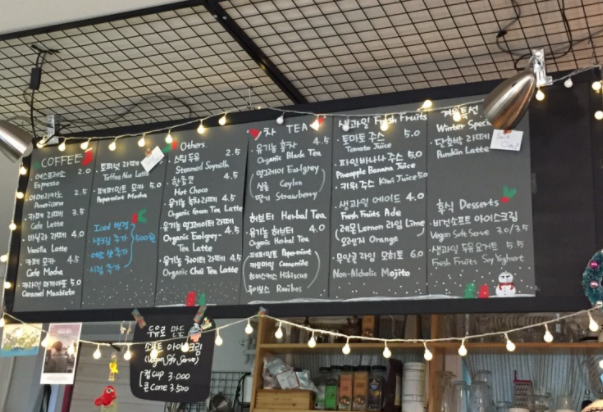 COFFEE
에스프레소 2.0
Espresso
아메리카노 2.5
Americano
카페 라떼 3.5
Cafe Latte
바닐라 라떼 4.0
Vanilla Latte
카페 모카 4.5
Cafe Mocha
카라멜 마끼아또 5.0
Caramel Machiato
토피넛 라떼
Toffee Nut Latte
페퍼민트 모카 5.0
Peppermint Mocha
Iced 변경
샷 추가
시럽 추가
500원
Others
스팀 두유 2.5
Steamed Soymilk
핫초코 4.5
Hot Choco
유기농 녹차라떼 4.5
Organic Green Tea Latte
유기농 얼그레이 라떼 4.5
Organic Earlgrey-
Tea Latte
유기농 차이 라떼 4.5
Organic Chai Tea Latte
차 TEA
유기농 홍차 4.5
Organic Black Tea
얼그레이 Earlgrey
실론 Ceylon
딸기 Strawberry
허브티 Herbal Tea
유기농 허브 4.0
Organic Herbal Tea
페퍼민트 Pepermint
캐모마일 Camomile
히비스커스 Hibiscus
루이보스 Rooibos
생과일 Fresh Fruits
토마토 주스 5.0
Tomato Juice
파인바나나 주스 5.0
Pineapple Banana Juice
키위 주스 Kiwi Juice 5.0
생과일 에이드 4.0
Fresh Fruits Ade
레몬 Lemon 라임 Lime
오렌지 Orange
무알콜 라임 모히또 6.0
Non-Alcholic Mojito
겨울특선
Winter Special
단호박 라떼
Pumkin Latte
후식 Desserts
비건소프트 아이스크림
Vegan Soft Serve 3.0/3.5
생과일 두유요거트 5.5
Fresh Fruits Soy Yoghurt
두유로 만든
소프트 아이스크림
(Vegan Soft Serve)
컵 cup 3.000
콘 Cone 3.500